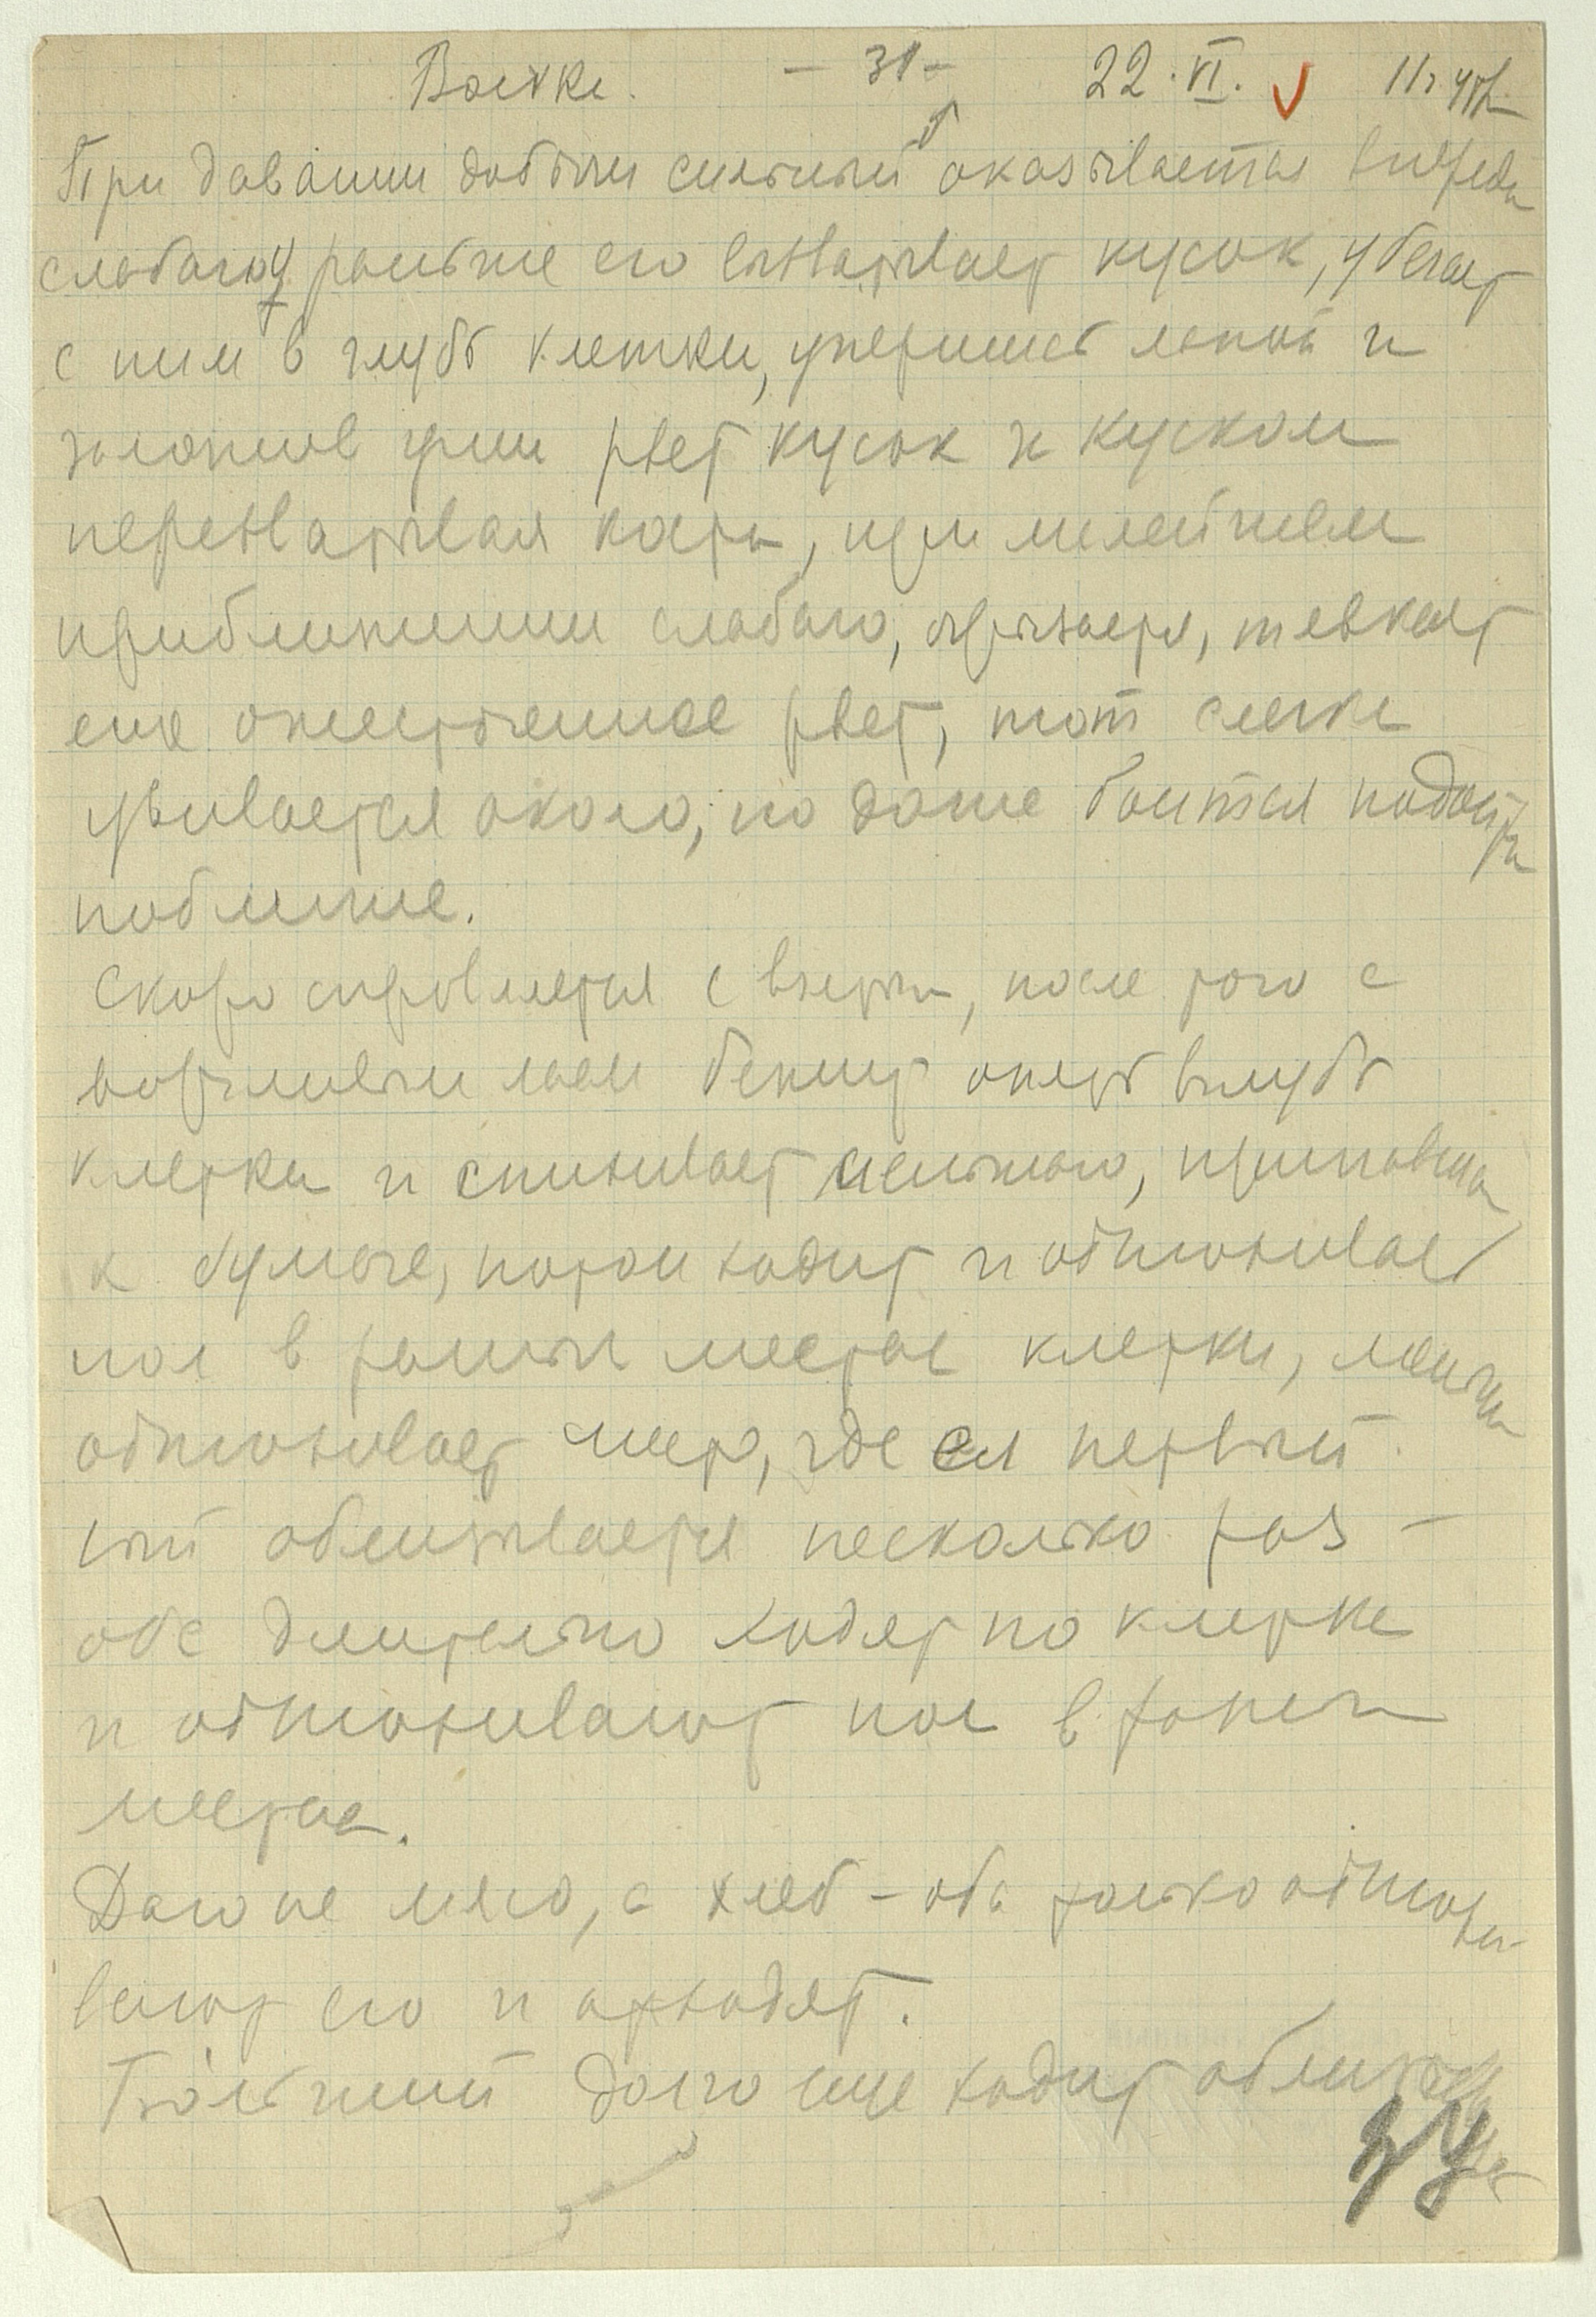 Волки. — 31 — 22.VI. 11 ч. утр.
При давании добычи сильный оказывается впереди
слабого, раньше его выхватывает кусок, убегает
с ним в глубь клетки, упершись лапой и
рвет кусок за куском
перехватывая когти, при малейшем
приближении слабого, огрызается, тявкает
еще ожесточеннее рвет, тот слегка
увивается около, но даже боится подойти
поближе.
Скоро справляется с взятым, после того с
бежит опять вглубь
клетки и спихивает сильного, припавши
к бумаге, потом ходит и обнюхивает
пол в разных местах клетки,
обнюхивает место, где ел первый.
облизывается несколько раз —
оба длительно ходят по клетке
и обнюхивают пол в разных
местах.
Даю не мясо, а хлеб — оба только обнюхи-
вают его и отходят.
Больший долго еще ходит